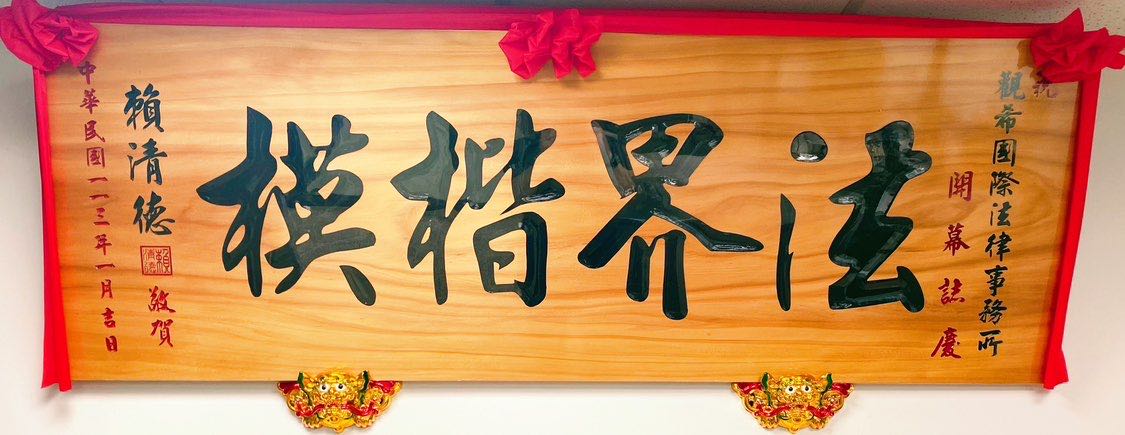 祝
觀希國際法律事務所
開幕誌慶
法界楷模
賴清德 敬賀
中華民國一一三年一月吉日